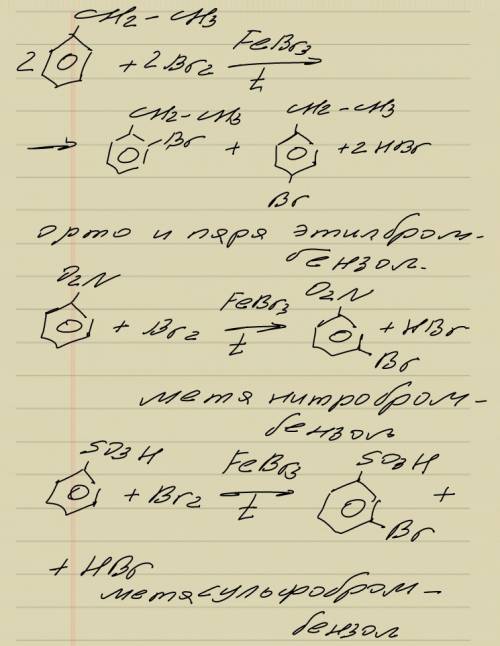 CH2-CH3
2 + 2Br2 FeBr3 t
CH2-CH3 CH2-CH3
Br + + 2HBr
Br
орто и пара этилбром-
бензол.
O2N O2N
+ Br2 FeBr3 t + HBr
Br
мета нитробром-
бензол
SO3H SO3H
+ Br2 FeBr3 t +
Br
+ HBr
метасульфобром-
бензол